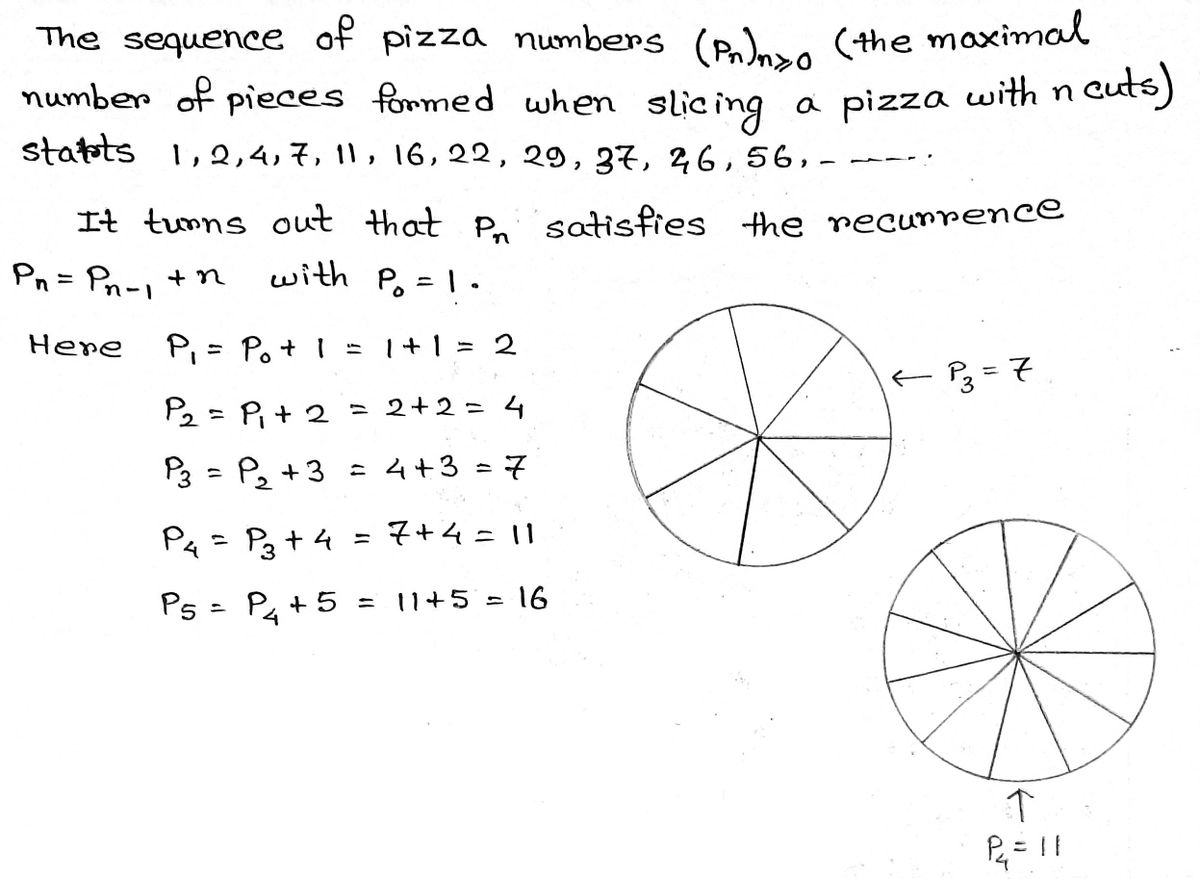 The sequence of pizza numbers (Pn)n≥0 (the maximal
number of pieces formed when slicing a pizza with n cuts)
starts 1, 2, 4, 7, 11, 16, 22, 29, 37, 46, 56, - ----.
It turns out that Pn satisfies the recurrence
Pn = Pn-1 + n with P0 = 1.
Here P1 = P0 + 1 = 1 + 1 = 2
← P3 = 7
P2 = P1 + 2 = 2 + 2 = 4
P3 = P2 + 3 = 4 + 3 = 7
P4 = P3 + 4 = 7 + 4 = 11
P5 = P4 + 5 = 11 + 5 = 16
↑
P4 = 11